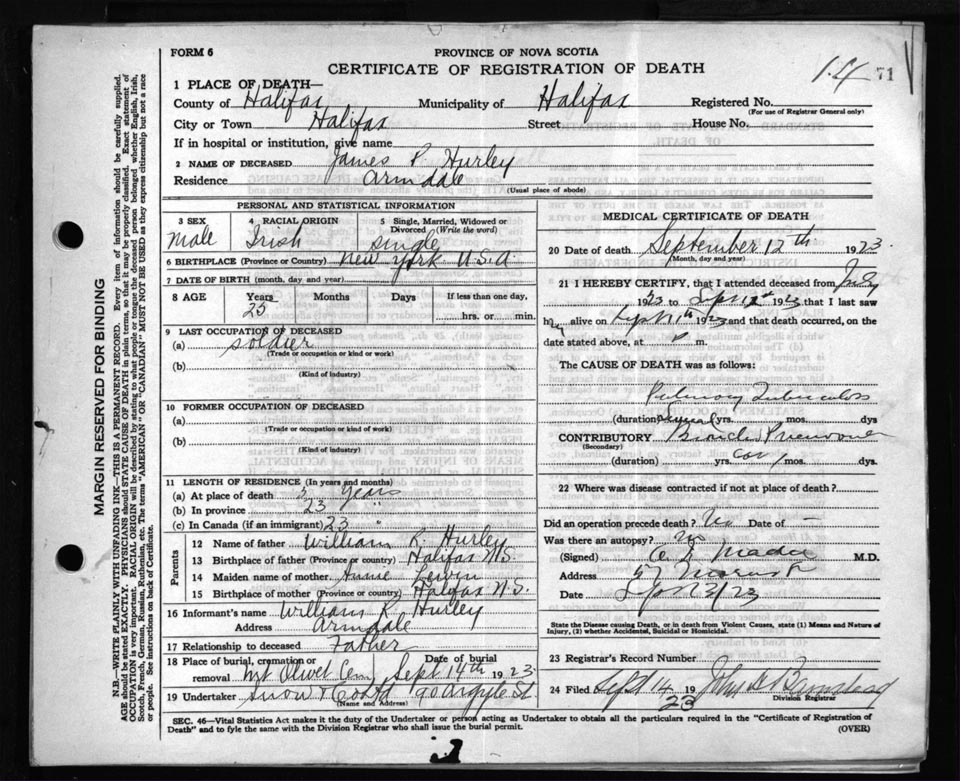 FORM 6
PROVINCE OF NOVA SCOTIA
CERTIFICATE OF REGISTRATION OF DEATH
14 71
1 PLACE OF DEATH—
County of Halifax Municipality of Halifax Registered No.
(For use of Registrar General only)
City or Town Halifax Street House No.
If in hospital or institution, give name
2 NAME OF DECEASED James P. Hurley
Residence Armdale
(Usual place of abode)
PERSONAL AND STATISTICAL INFORMATION
3 SEX 4 RACIAL ORIGIN 5 Single, Married, Widowed or Divorced (Write the word)
Male Irish single
6 BIRTHPLACE (Province or Country) New York U.S.A.
7 DATE OF BIRTH (month, day and year)
8 AGE Years Months Days If less than one day,
25 hrs. or min.
9 LAST OCCUPATION OF DECEASED
(a) soldier
(Trade or occupation or kind or work)
(b)
(Kind of industry)
10 FORMER OCCUPATION OF DECEASED
(a)
(Trade or occupation or kind of work)
(b)
(Kind of industry)
11 LENGTH OF RESIDENCE (In years and months)
(a) At place of death 3 years
(b) In province 23 "
(c) In Canada (if an immigrant) 23 "
Parents
12 Name of father William K. Hurley
13 Birthplace of father (Province or country) Halifax N.S.
14 Maiden name of mother Annie
15 Birthplace of mother (Province or country) Halifax N.S.
16 Informant's name William K. Hurley
Address Armdale
17 Relationship to deceased Father
18 Place of burial, cremation or removal Mt Olivet Cem Date of burial Sept 14th 1923
19 Undertaker Snow & Co Ltd 90 Argyle St.
(Name and Address)
MEDICAL CERTIFICATE OF DEATH
20 Date of death September 12th 1923
(Month, day and year)
21 I HEREBY CERTIFY, that I attended deceased from July
1923 to Sept 12th 1923 that I last saw
h alive on Sept 1923 and that death occurred, on the
date stated above, at m.
The CAUSE OF DEATH was as follows:
Pulmonary Tuberculosis
(duration) several yrs. mos. dys
CONTRIBUTORY Broncho Pneumonia
(Secondary)
(duration) yrs. mos. dys.
22 Where was disease contracted if not at place of death?
Did an operation precede death? No Date of —
Was there an autopsy? No
(Signed) M.D.
Address 57 Morris St
Date Sept 23
State the Disease causing Death, or in death from Violent Causes, state (1) Means and Nature of
Injury, (2) whether Accidental, Suicidal or Homicidal.
23 Registrar's Record Number
24 Filed Sept 14 1923 John Barnstead
Division Registrar
SEC. 46—Vital Statistics Act makes it the duty of the Undertaker or person acting as Undertaker to obtain all the particulars required in the "Certificate of Registration of
Death" and to fyle the same with the Division Registrar who shall issue the burial permit.
(OVER)
MARGIN RESERVED FOR BINDING
N.B.—WRITE PLAINLY WITH UNFADING INK—THIS IS A PERMANENT RECORD. Every item of information should be carefully supplied.
AGE should be stated EXACTLY. PHYSICIANS should STATE CAUSE OF DEATH in plain terms, so that it may be properly classified. Exact statement of
OCCUPATION is very important. RACIAL ORIGIN will be described by stating to what people or tongue the deceased person belonged whether English, Irish,
Scotch, French, German, Russian, Ruthenian, etc. The terms "AMERICAN" OR "CANADIAN" MUST NOT BE USED as they express citizenship but not a race
or people. See instructions on back of Certificate.